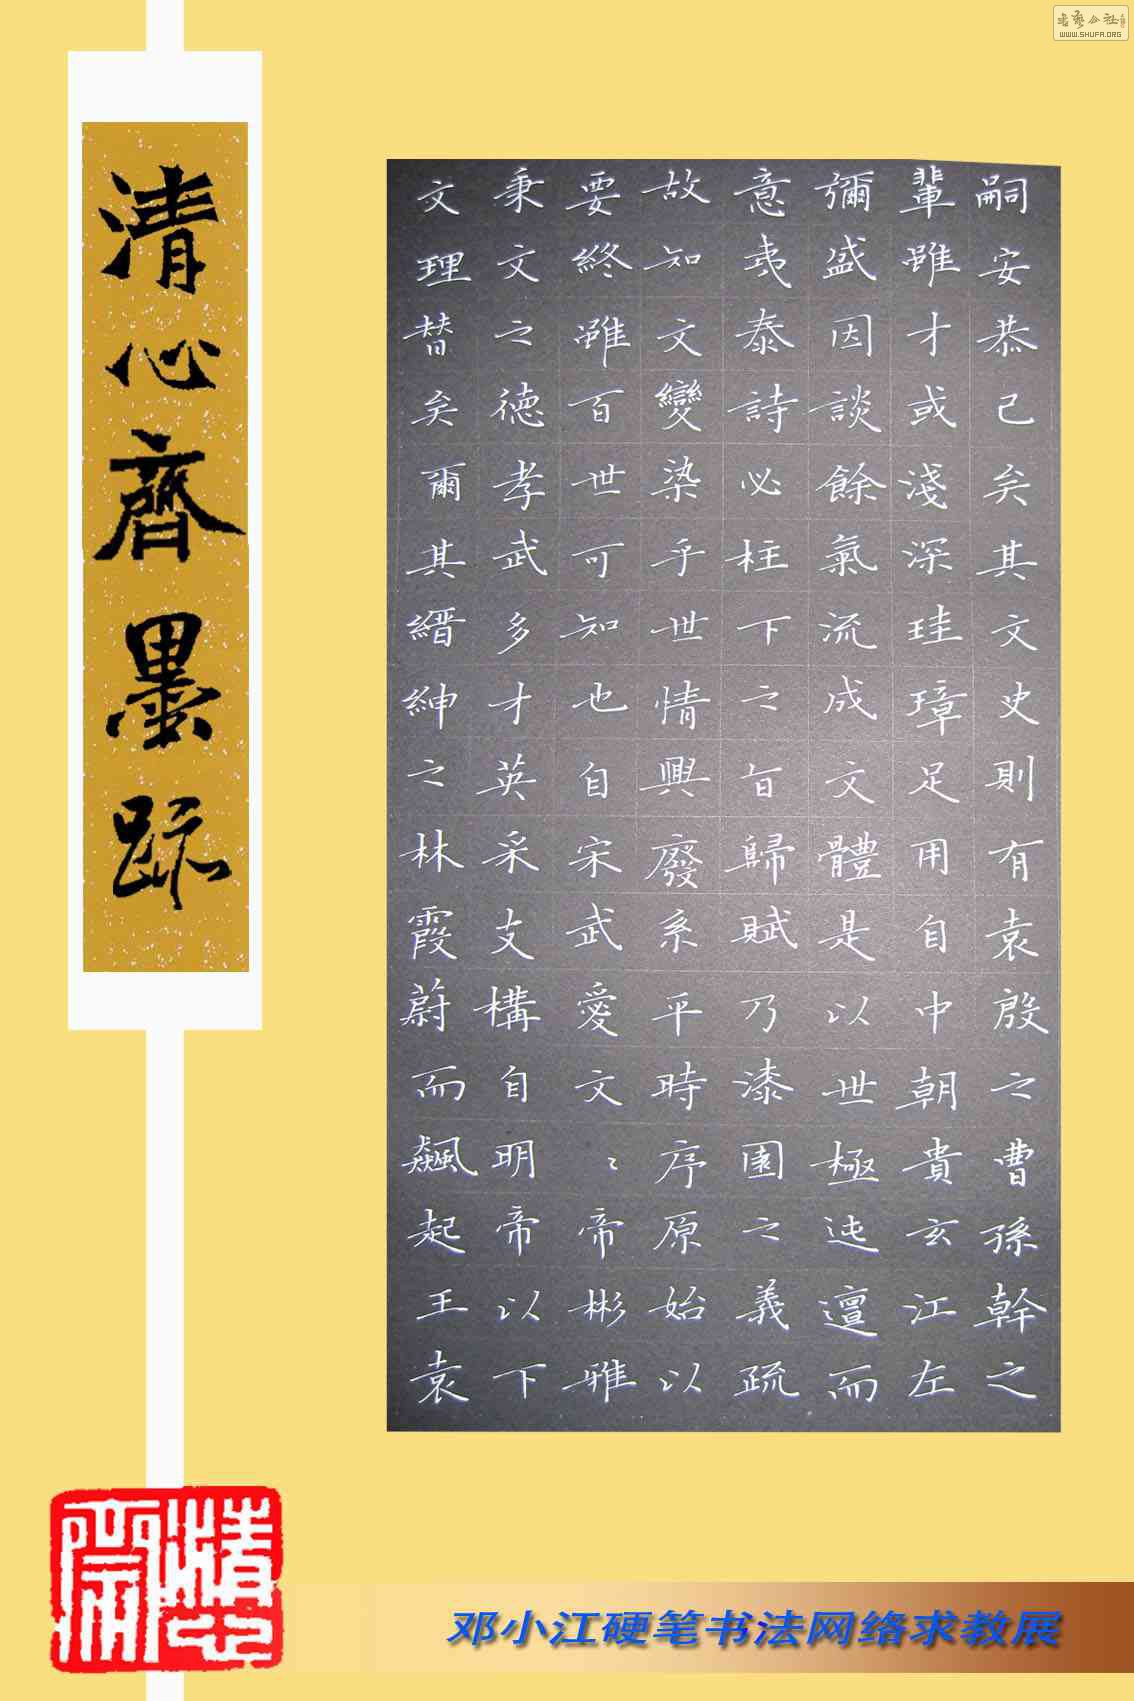 WWW.SHUFA.ORG
清心齊墨跡
嗣安恭己矣其文史則有袁殷之曹孫幹之
輩雖才或淺深珪璋足用自中朝貴玄江左
彌盛因談餘氣流成文體是以世極迍邅而
意夷泰詩必柱下之旨歸賦乃漆園之義疏
故知文變染乎世情興廢系乎時序原始以
要終雖百世可知也自宋武愛文〻帝彬雅
秉文之德孝武多才英采支構自明帝以下
文理替矣爾其縉紳之林霞蔚而飆起王袁
清心齋
邓小江硬笔书法网络求教展